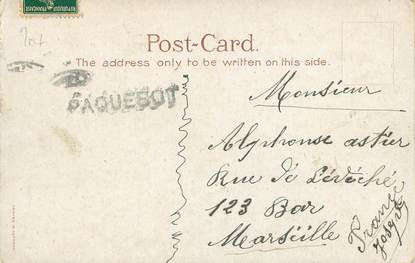 Post-Card.
The address only to be written on this side.
PAQUEBOT
Monsieur
Alphonse astier
Rue de L'évêché
123 Bar
Marseille
France